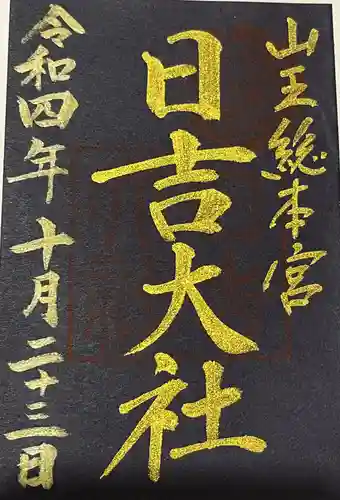 山王総本宮
日吉大社
令和四年十月二十三日